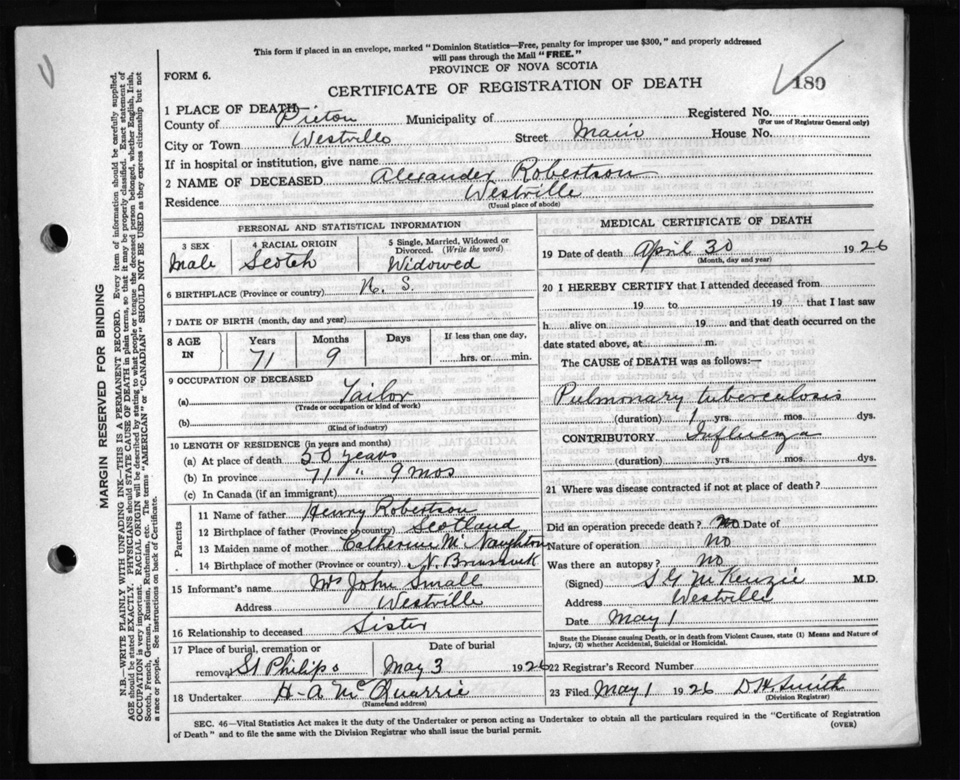 This form if placed in an envelope, marked "Dominion Statistics—Free, penalty for improper use $300," and properly addressed
will pass through the Mail "FREE."
PROVINCE OF NOVA SCOTIA
FORM 6.
CERTIFICATE OF REGISTRATION OF DEATH
180
1 PLACE OF DEATH—
County of Pictou Municipality of Registered No.
(For use of Registrar General only)
City or Town Westville Street Main House No.
If in hospital or institution, give name
2 NAME OF DECEASED Alexander Robertson
Residence Westville
(Usual place of abode)
PERSONAL AND STATISTICAL INFORMATION
3 SEX 4 RACIAL ORIGIN 5 Single, Married, Widowed or
Divorced. (Write the word)
Male Scotch Widowed
6 BIRTHPLACE (Province or country) N. S.
7 DATE OF BIRTH (month, day and year)
8 AGE IN Years Months Days If less than one day,
71 9 hrs. or min.
9 OCCUPATION OF DECEASED
(a) Tailor
(Trade or occupation or kind of work)
(b)
(Kind of industry)
10 LENGTH OF RESIDENCE (in years and months)
(a) At place of death 50 years
(b) In province 71 " 9 mos
(c) In Canada (if an immigrant)
Parents
11 Name of father Henry Robertson
12 Birthplace of father (Province or country) Scotland
13 Maiden name of mother Catherine McNaughton
14 Birthplace of mother (Province or country) N. Brunswick
15 Informant's name Mrs John Small
Address Westville
16 Relationship to deceased Sister
17 Place of burial, cremation or Date of burial
removal St Philips May 3 1926
18 Undertaker H-A McQuarrie
(Name and address)
MEDICAL CERTIFICATE OF DEATH
19 Date of death April 30 1926
(Month, day and year)
20 I HEREBY CERTIFY that I attended deceased from
19 to 19 that I last saw
h alive on 19 and that death occurred on the
date stated above, at m.
The CAUSE of DEATH was as follows:—
Pulmonary tuberculosis
(duration) 1 yrs. mos. dys.
CONTRIBUTORY Influenza
(duration) yrs. mos. dys.
21 Where was disease contracted if not at place of death?
Did an operation precede death? no Date of
Nature of operation no
Was there an autopsy? no
(Signed) S G McKenzie M.D.
Address Westville
Date May 1
State the Disease causing Death, or in death from Violent Causes, state (1) Means and Nature of
Injury, (2) whether Accidental, Suicidal or Homicidal.
22 Registrar's Record Number
23 Filed May 1 1926 D H Smith
(Division Registrar)
SEC. 46—Vital Statistics Act makes it the duty of the Undertaker or person acting as Undertaker to obtain all the particulars required in the "Certificate of Registration
of Death" and to file the same with the Division Registrar who shall issue the burial permit.
(OVER)
MARGIN RESERVED FOR BINDING
N.B.—WRITE PLAINLY WITH UNFADING INK—THIS IS A PERMANENT RECORD. Every item of information should be carefully supplied.
AGE should be stated EXACTLY. PHYSICIANS should STATE CAUSE OF DEATH in plain terms, so that it may be properly classified. Exact statement of
OCCUPATION is very important. RACIAL ORIGIN will be described by stating to what people or tongue the deceased person belonged, whether English, Irish,
Scotch, French, German, Russian, Ruthenian, etc. The terms "AMERICAN" or "CANADIAN" SHOULD NOT BE USED as they express citizenship but not
a race or people. See instructions on back of Certificate.